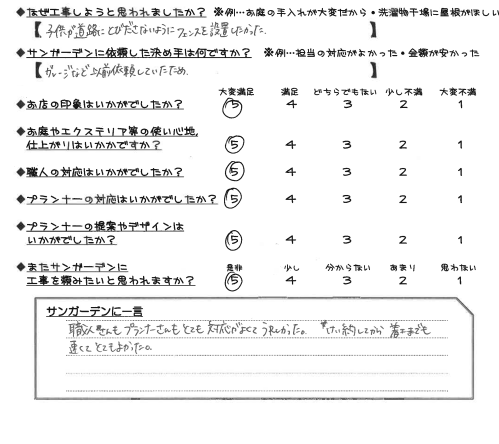 ◆なぜ工事しようと思われましたか？ ※例…お庭の手入れが大変だから・洗濯物干場に屋根がほしい
【 子供が道路にとびださないようにフェンスを設置したかった。 】
◆サンガーデンに依頼した決め手は何ですか？ ※例…担当の対応がよかった・金額が安かった
【 ガレージなど以前依頼していたため。 】
大変満足 満足 どちらでもない 少し不満 大変不満
◆お店の印象はいかがでしたか？ 5 4 3 2 1
◆お庭やエクステリア等の使い心地,
仕上がりはいかかですか？ 5 4 3 2 1
◆職人の対応はいかがでしたか？ 5 4 3 2 1
◆プランナーの対応はいかがでしたか？ 5 4 3 2 1
◆プランナーの提案やデザインは
いかがでしたか？ 5 4 3 2 1
◆またサンガーデンに 是非 少し 分からない あまり 思わない
工事を頼みたいと思われますか？ 5 4 3 2 1
サンガーデンに一言
職人さんもプランナーさんもとても対応がよくてうれしかった。 けい約してから 着工までも
速くてとてもよかった。